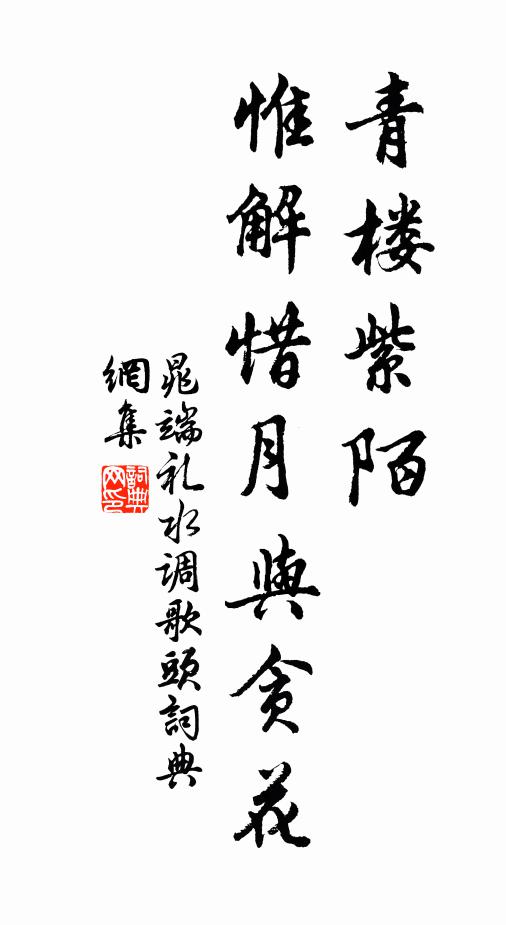 青楼紫陌
惟解惜月與贪花
晁端礼水调歌頭詞典
網集
詞典网印